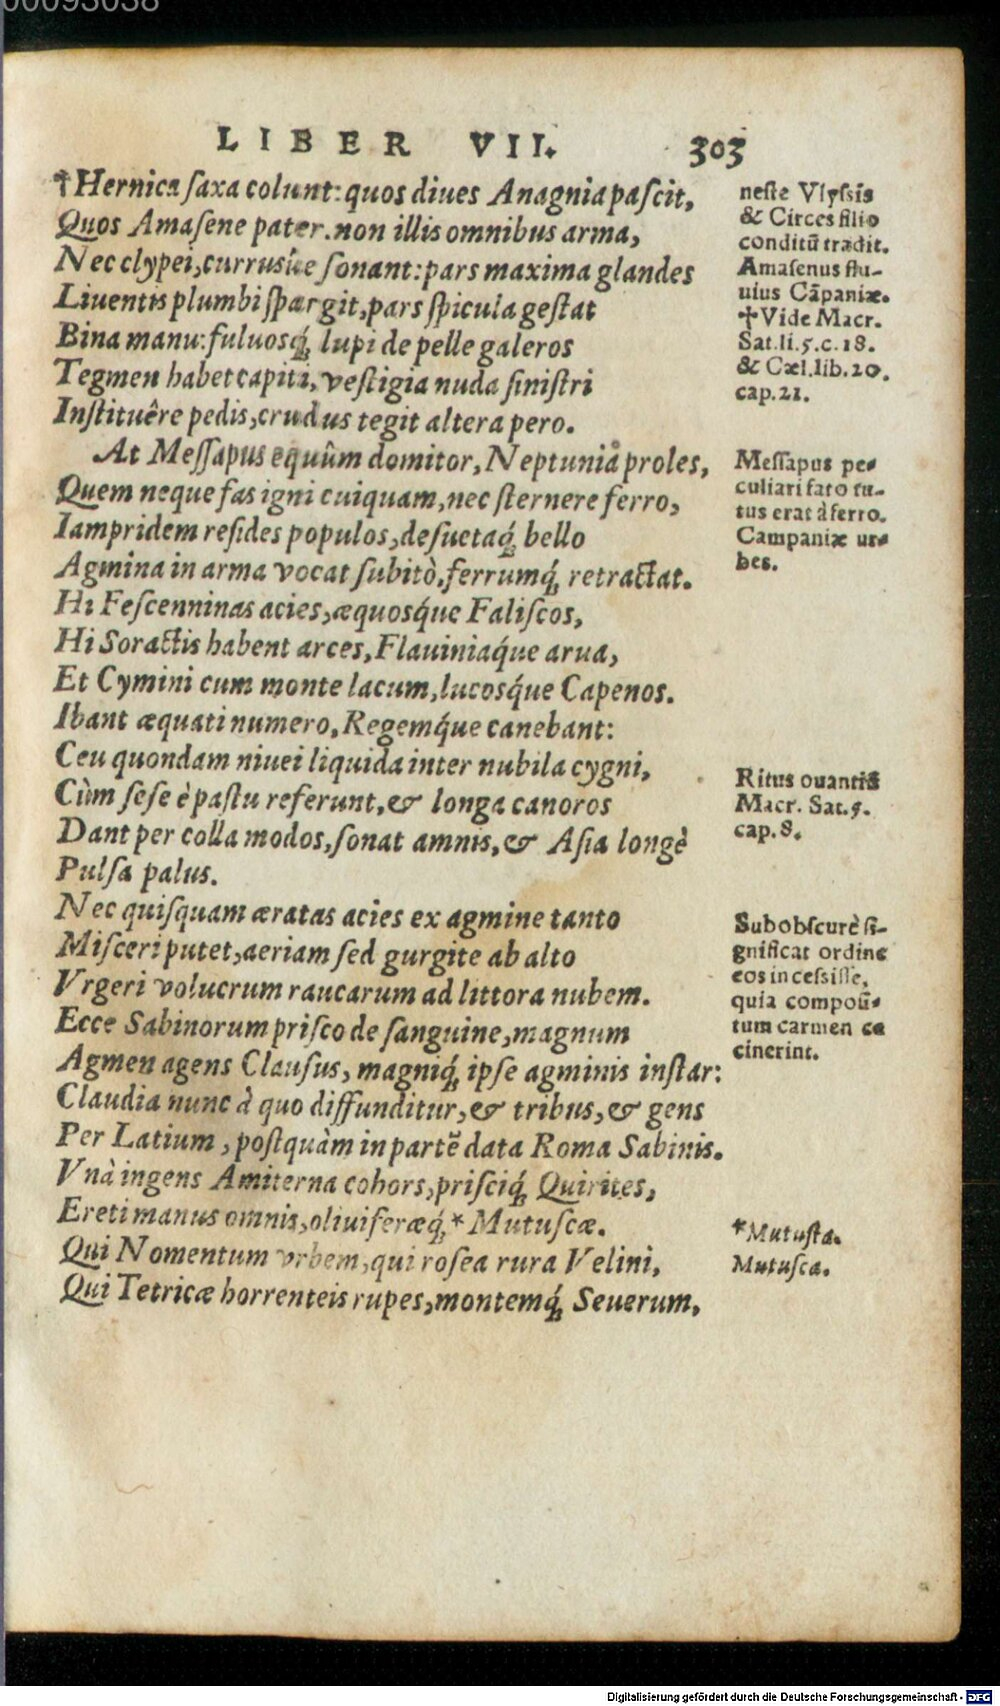 00093038
LIBER VII. 303
†Hernica ſaxa colunt: quos diues Anagnia paſcit,
Quos Amaſene pater. non illis omnibus arma,
Nec clypei, currusúe ſonant: pars maxima glandes
Liuentis plumbi ſpargit, pars ſpicula geſtat
Bina manu: fuluosq́; lupi de pelle galeros
Tegmen habet capiti, veſtigia nuda ſiniſtri
Inſtituêre pedis, crudus tegit altera pero.
At Meſſapus equûm domitor, Neptunia proles,
Quem neque fas igni cuiquam, nec ſternere ferro,
Iampridem reſides populos, deſuetaq́; bello
Agmina in arma vocat ſubitò, ferrumq́; retractat.
Hi Feſcenninas acies, æquosq́ue Faliſcos,
Hi Soractis habent arces, Flauiniaq́ue arua,
Et Cymini cum monte lacum, lucosq́ue Capenos.
Ibant æquati numero, Regemq́ue canebant:
Ceu quondam niuei liquida inter nubila cygni,
Cùm ſeſe è paſtu referunt, & longa canoros
Dant per colla modos, ſonat amnis, & Aſia longè
Pulſa palus.
Nec quiſquam æratas acies ex agmine tanto
Miſceri putet, aeriam ſed gurgite ab alto
Vrgeri volucrum raucarum ad littora nubem.
Ecce Sabinorum priſco de ſanguine, magnum
Agmen agens Clauſus, magniq́; ipſe agminis inſtar:
Claudia nunc à quo diffunditur, & tribus, & gens
Per Latium, poſtquàm in partē data Roma Sabinis.
Vnà ingens Amiterna cohors, priſciq́; Quirites,
Ereti manus omnis, oliuiferæq́; * Mutuſcæ.
Qui Nomentum vrbem, qui roſea rura Velini,
Qui Tetricæ horrenteis rupes, montemq́; Seuerum,
neſte Vlyſsis
& Circes filio
conditū tradit.
Amaſenus flu-
uius Cāpaniæ.
†Vide Macr.
Sat. li. 5. c. 18.
& Cæl. lib. 20.
cap. 21.
Meſſapus pe-
culiari fato tu-
tus erat à ferro.
Campaniæ ur-
bes.
Ritus ouantis
Macr. Sat. 5.
cap. 8.
Subobſcurè ſi-
gnificat ordine
eos inceſsiſſe,
quia compoſi-
tum carmen ce
cinerint.
*Mutuſta.
Mutuſca.
Digitalisierung gefördert durch die Deutsche Forschungsgemeinschaft - DFG